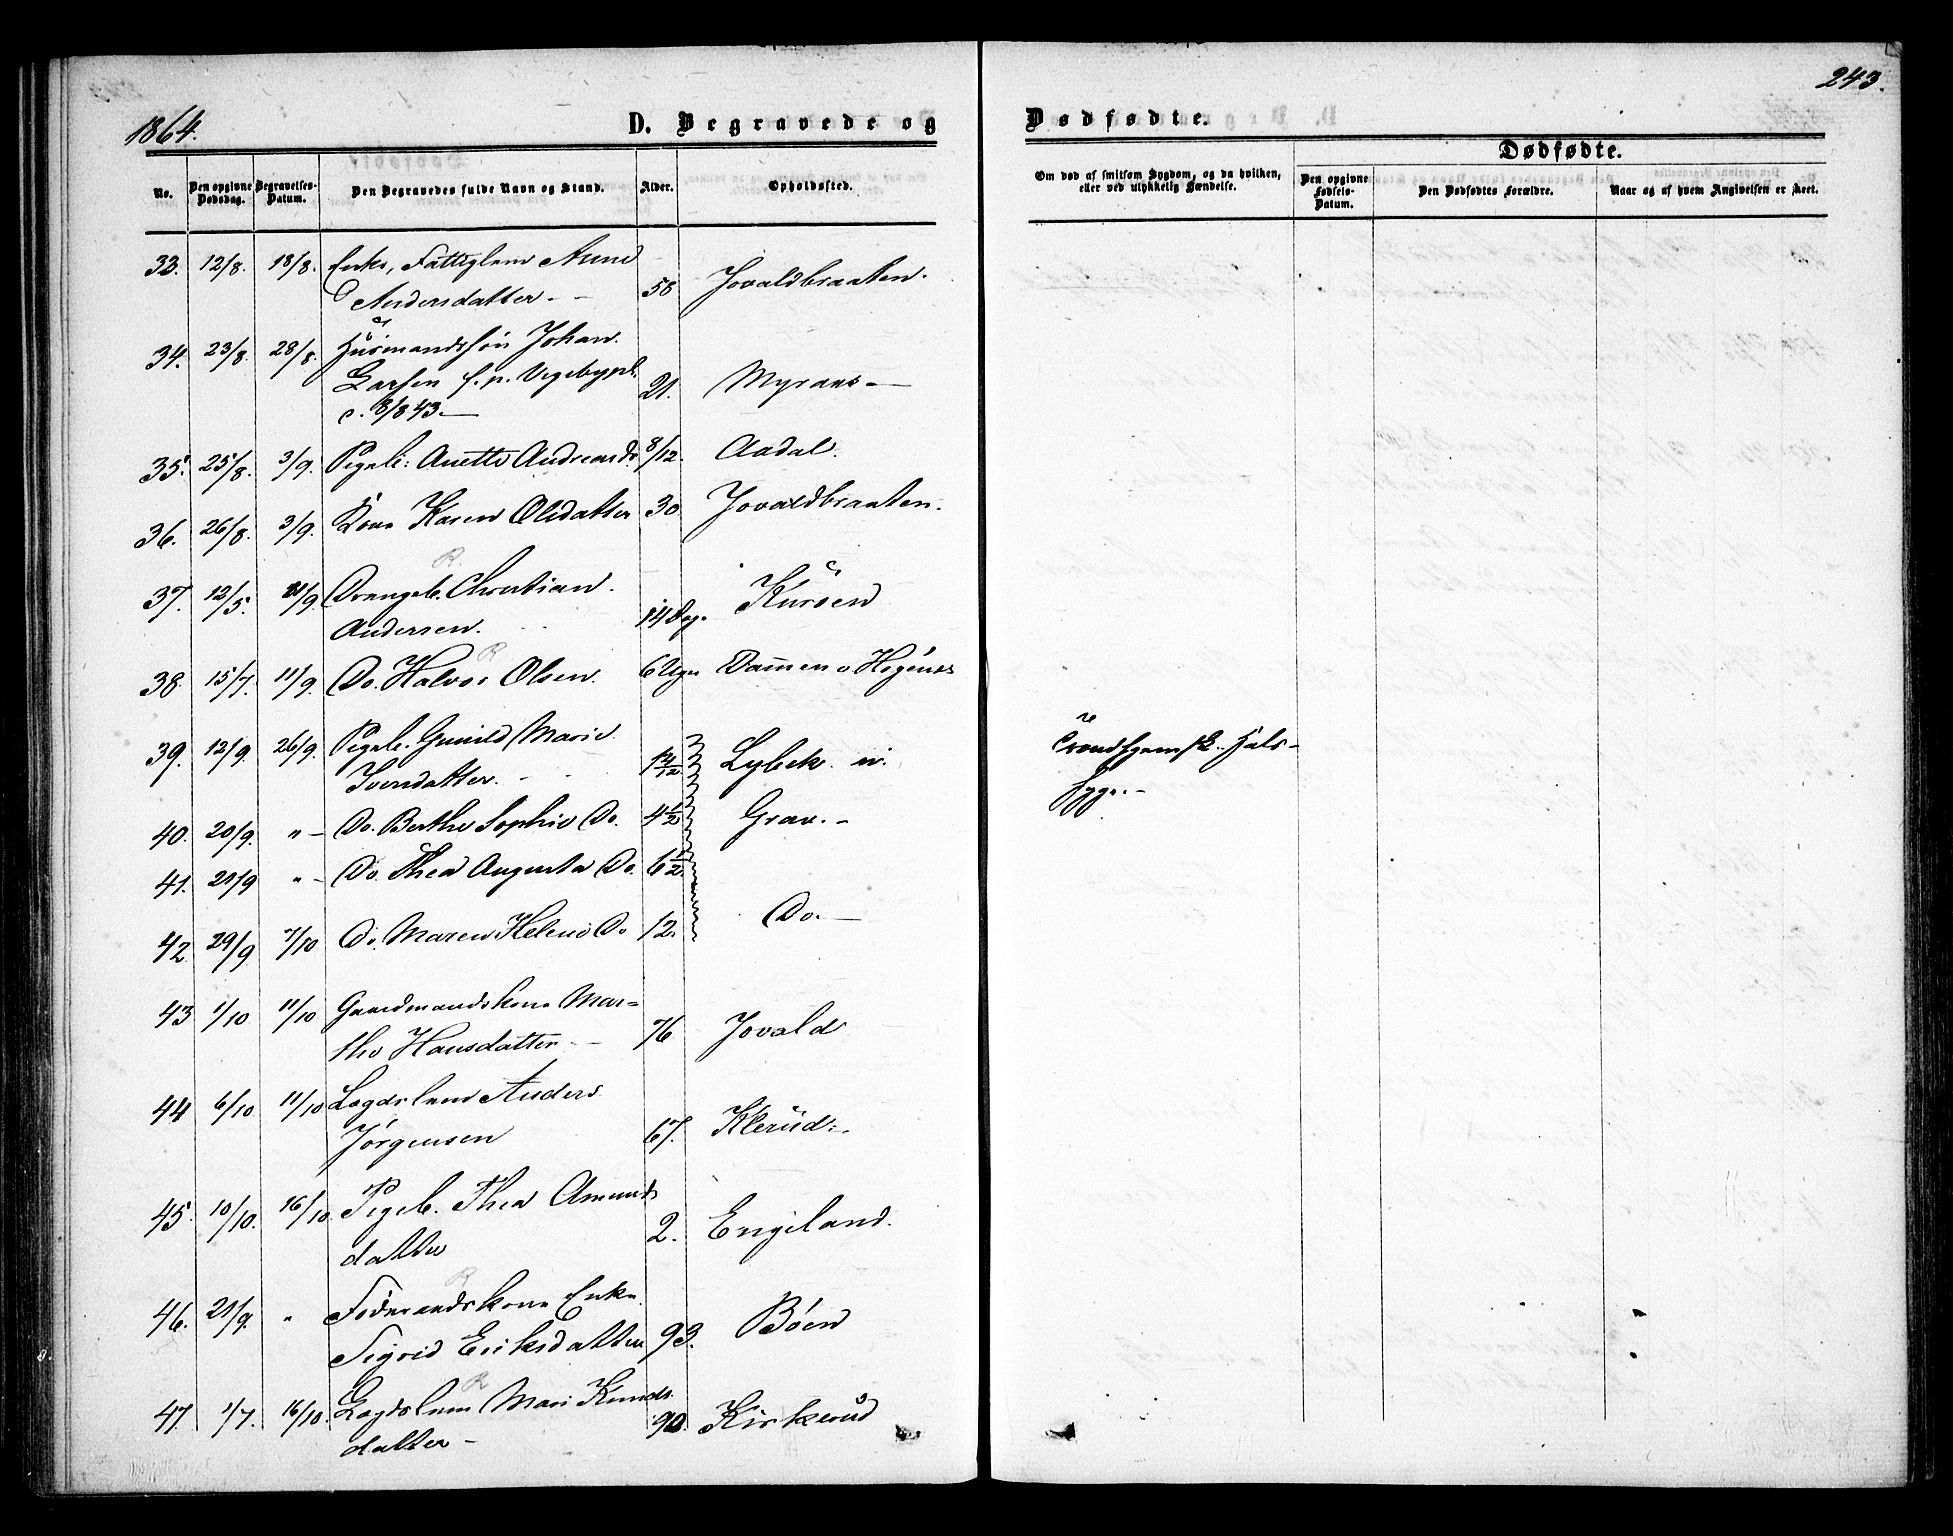 243.
1864.
D. Begravede og
Dødfødte.
No.
Den opgivne Dødsdag.
Begravelses-Datum.
Den Begravedes fulde Navn og Stand.
Alder.
Opholdssted.
Om død af smitsom Sygdom, og da hvilken, eller ved ulykkelig Hændelse.
Dødfødte.
Den opgivne Fødsels-Datum.
Den Dødfødtes Forældre.
Naar og af hvem Angivelsen er skeet.
33. 12/8. 18/8. Enke, Fattiglem Anne
Andersdatter - 58 Jovaldbraaten.
34. 23/8. 28/8. Husmandssøn Johan
Larsen f. p. Vegebypl. 21. Myrans -
c. 8/8 43. -
35. 25/8. 3/9. Pigeb: Anette Andreasdr. 8/12. Aadal.
36. 26/8. 3/9. Kone Karen Olsdatter 30 Jovaldbraaten.
R.
37. 12/5. 11/9. Drengeb. Christian
Andersen. 14 Dage Kursen
R
38. 15/7. 11/9. Do. Halvor Olsen. 6 Uger Dammen u Hognæs
39. 12/9. 26/9. Pigeb. Gunild Marie
Iversdatter. - Lybek u.
Ondartet Hals-
syge. -
40. 20/9. " - Do. Berthe Sophie Do. 4 1/2 Grav. -
41. 21/9 " - Do. Thea Augusta Do. 6 1/2
42. 29/9. 7/10 Do. Maren Helene Do 12. Do. -
43 1/10 11/10 Gaardmandskone Mar=
the Hansdatter - 76 Jovald
44 6/10 11/10 Lægdslem Anders
Jørgensen 67. Klerud.
45. 10/10. 16/10. Pigeb. Thea Amunds
datter 2. Engeland.
R
46. 21/9. " Føderaadskone Enke
Sigrid Eriksdatter 93. Bøen
R
47. 1/7. 16/10. Lægdslem Mari Knuds
datter - 90. Kirkerud